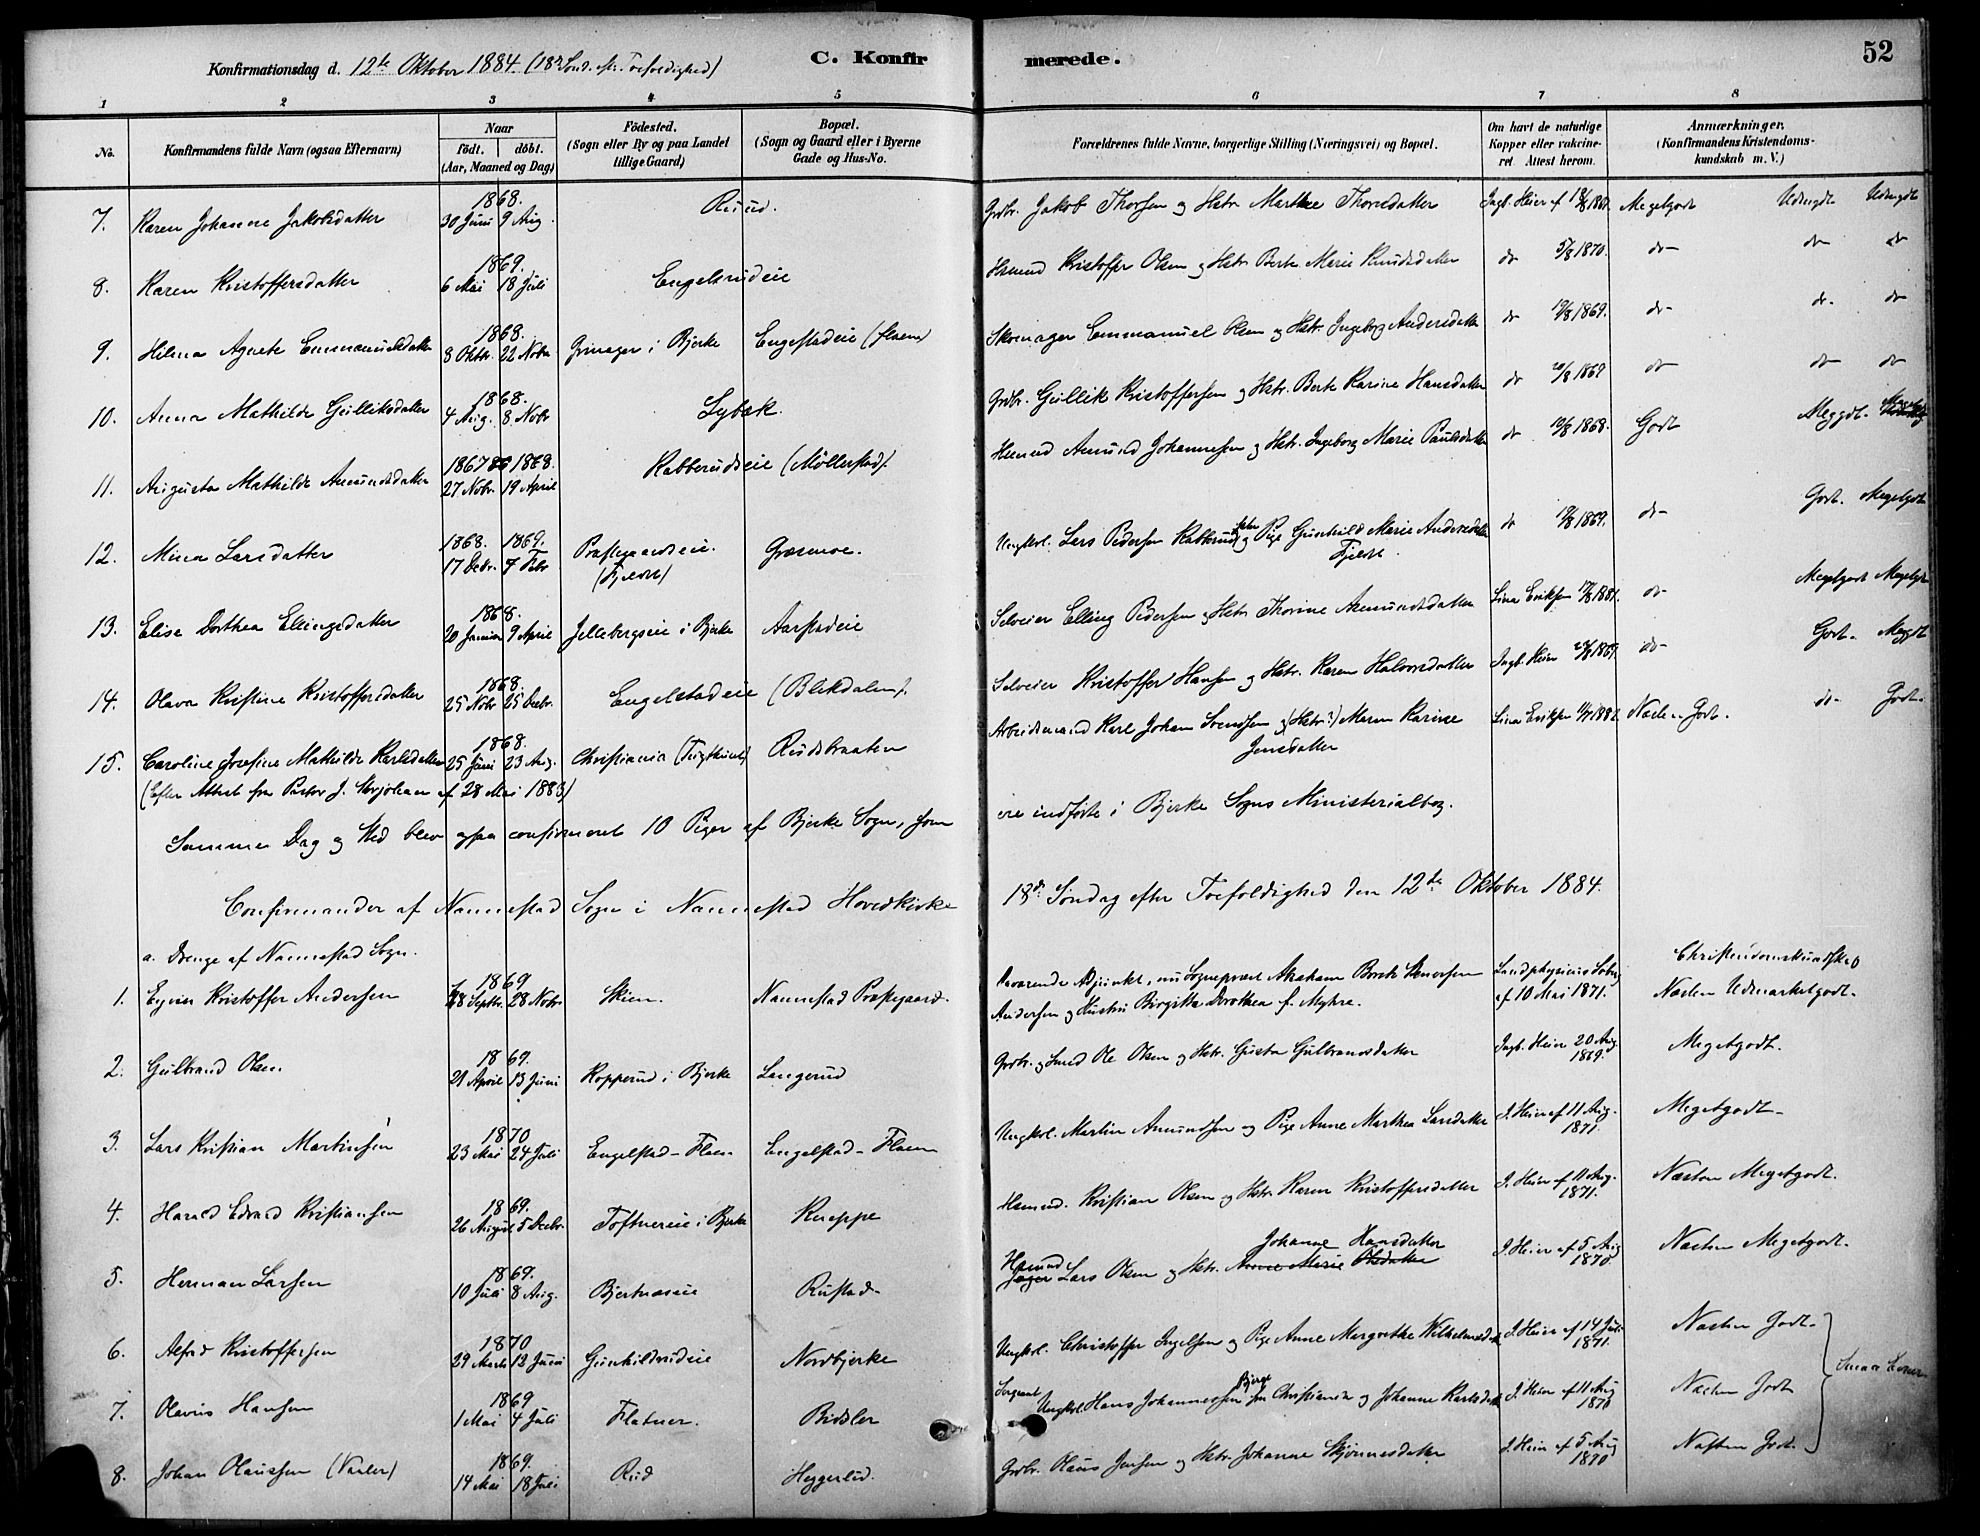 Konfirmationsdag d. 12te Oktober 1884. (18de Sønd. eft. Trefoldighed)
C. Konfirmerede.
52
1 2 3 4 5 6 7 8
No.
Konfirmandens fulde Navn (ogsaa Efternavn)
Naar
født. døbt.
(Aar, Maaned og Dag)
Födested.
(Sogn eller By og paa Landet
tillige Gaard)
Bopæl.
(Sogn og Gaard eller i Byerne
Gade og Hus-No.
Forældrenes fulde Navne, borgerlige Stilling (Næringsvei) og Bopæl.
Om havt de naturlige
Kopper eller vakcine-
ret Attest herom.
Anmærkninger.
(Konfirmandens Kristendoms-
kundskab m. V.)
1868.
7. Karen Johanne Jakobsdatter 30 Juni 9 Aug. Ruud. Grdbr. Jakob Thorsen og Hstr. Marthe Thorsdatter Meget godt
1869.
8. Karen Kristoffersdatter 6 Mai 18 Juli Engelsrudeie Husmd Kristoffer Olsen og Hstr. Berte Marie Knudsdatter do 5/8 1870. do
1868.
9. Hilma Agnete Emmanuelsdatter 8 Oktbr. 22 Novbr Grinager i Bjerke Engelstadeie (Flaen) Skomager Emmanuel Olsen og Hstr. Ingeborg Andersdatter do 1869. do
1868.
10. Anna Mathilde Gulliksdatter 4 Aug. 8 Novbr Lybæk. Grdbr. Gullik Kristoffersen og Hstr. Berte Karine Hansdatter do 1869 do
1867 1868.
11. Augusta Mathilde Amundsdatter 27 Novbr. 19 April Kabberudseie (Møllerstad). Husmd Amund Johannesen og Hstr. Ingeborg Marie Paulsdatter do 1868. Godt
1868. 1869.
12. Mina Larsdatter 17 Decbr. 7 Febr Præstegaardseie. Græsmoe. Ungkrl. Lars Pedersen Kabberud og Pige Gunhild Marie Andersdatter do 1869. do
(Fjeldet) Fjeldet
1868.
13. Elise Dorthea Ellingsdatter 20 Januar 9 April Jellebergseie i Bjerke Aarstadeie Selveier Elling Pedersen og Hstr. Thorine Amundsdatter Lina Eriksen 1881. do
1868.
14. Olava Kristine Kristoffersdatter 25 Novbr 25 Decbr. Engelstadeie (Blekdalen). Selveier Kristoffer Hansen og Hstr. Karen Halvorsdatter Jngb. Heier 1869. do Godt. Megetgodt
1868.
15. Caroline Josefine Mathilde Karlsdatter 25 Juni 23 Aug. Christiania (Tugthuset) Rudsbraaten Arbeidsmand Karl Johan Svendsen og (Hstr?) Maren Karine Jensdatter Lina Eriksen 1882. Næsten Godt. do Godt.
(Efter Attest fra Pastor J. Storjohan af 28 Mai 1883)
Samme Dag og Sted blev ogsaa confirmeret 10 Piger af Bjerke Sogn, som ere indførte i Bjerke Sogns Ministerialbog.
Confirmander af Nannestad Sogn i Nannestad Hovedkirke 18de Søndag efter Trefoldighed den 12te Oktober 1884.
a. Drenge af Nannestad Sogn. Christendomskundskab
1869
1. Eyvin Kristoffer Andersen 28 Septbr. 28 Novbr Skien. Nannestad Præstegaard. Daværende Adjunkt, nu Sognepræst Abraham Andersen og Hustru Birgitte Dorothea f. Myhre. Landphysicus af 10 Mai 1871. Næsten Udmærketgodt.
1869.
2. Gulbrand Olsen 21 April 13 Juni Kopperud i Bjerke Langerud Grdbr. og Smed Ole Olsen og Hstr. Gusta Gulbrandsdatter Jngb. Heier 20 Aug. 1869. Megetgodt.
1870
3. Lars Kristian Martinsen 23 Mai 24 Juli Engelstad-Flaen Engelstad-Flaen Ungkrl. Martin Amundsen og Pige Anne Marthea Larsdatter J. Heier af 11 Aug. 1871. Megetgodt
1869.
4. Harald Edvard Kristiansen 26 August 5 Decbr. Toftnereie i Bjerke Kneppe Husmd. Kristian Olsen og Hstr. Karen Kristoffersdatter J. Heier af 11 Aug. 1871. Næsten Megetgodt.
1869.
5. Herman Larsen 10 Juli 8 Aug. Bjertnæseie Rustad Husmd Lars Olsen og Hstr. Johanne Hansdatter J. Heier af 5 Aug 1870. Næsten Megetgodt.
1870
6. Alfred Kristoffersen 29 Marts 12 Juni Gunhildrudeie Nordbjerke Ungkrl. Christoffer Ingelsen og Pige Anne Margrethe J. Heier af 14 Juli 1871. Næsten Godt.
1869
7. Olavus Hansen 1 Mai 4 Juli Flatner. Bidsler Sergeant Ungkrl Hans Johannessen Bjerge fra Christiania og Johanne Karlsdatter J. Heier af 11 Aug 1870 Næsten Godt
1869.
8. Johan Olaussen (Vaaler) 14 Mai 18 Juli Rud Heggerud. Grdbr. Olaus Jensen og Hstr. Johanne J. Heier af 5 Aug 1870 Næsten Godt.